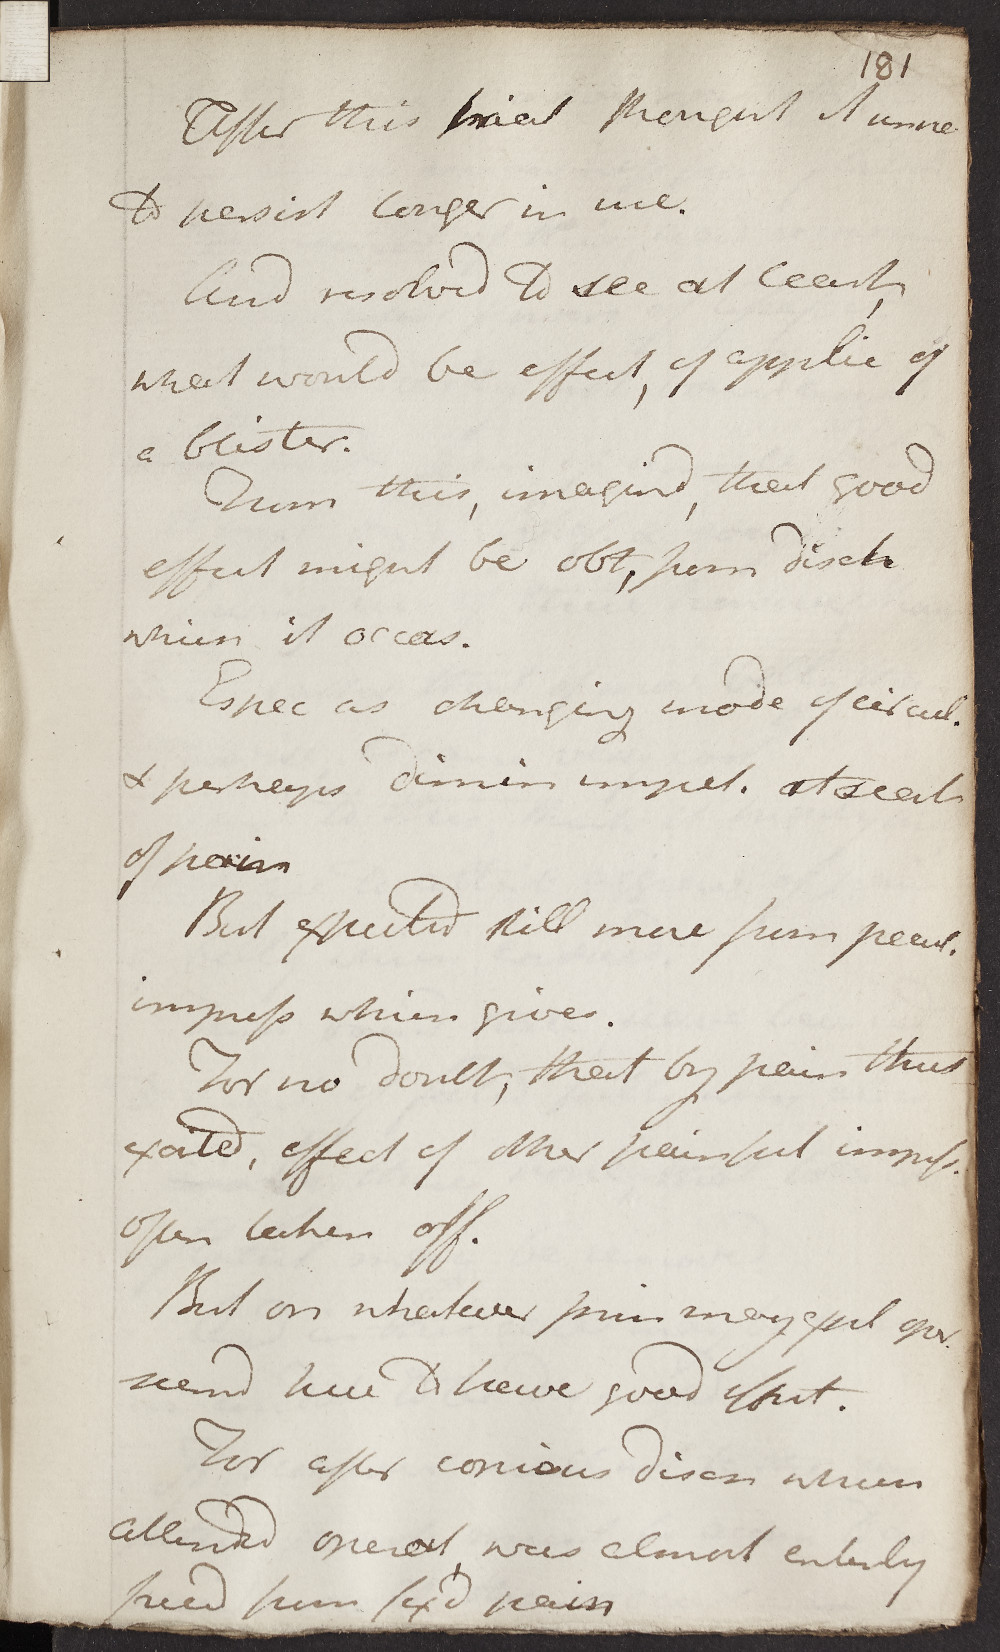 181
After this trial thought it unne
to persist longer in use.
And resolvd to see at least,
what would be effect, of applic of
a blister.
From this, imagind, that good
effect might be obt, from disch
which it occas.
Espec as changing mode of circul.
& perhaps dimin impet. at seat
of pain
But expected still more from pecul.
impress which gives.
For no doubt, that by pain thus
excited, effect of other painful impress.
often taken off.
But on whatever prin may expl oper.
seemd here to have good effect.
For after copious disch which
attended operat, was almost enterly
freed from fix'd pain